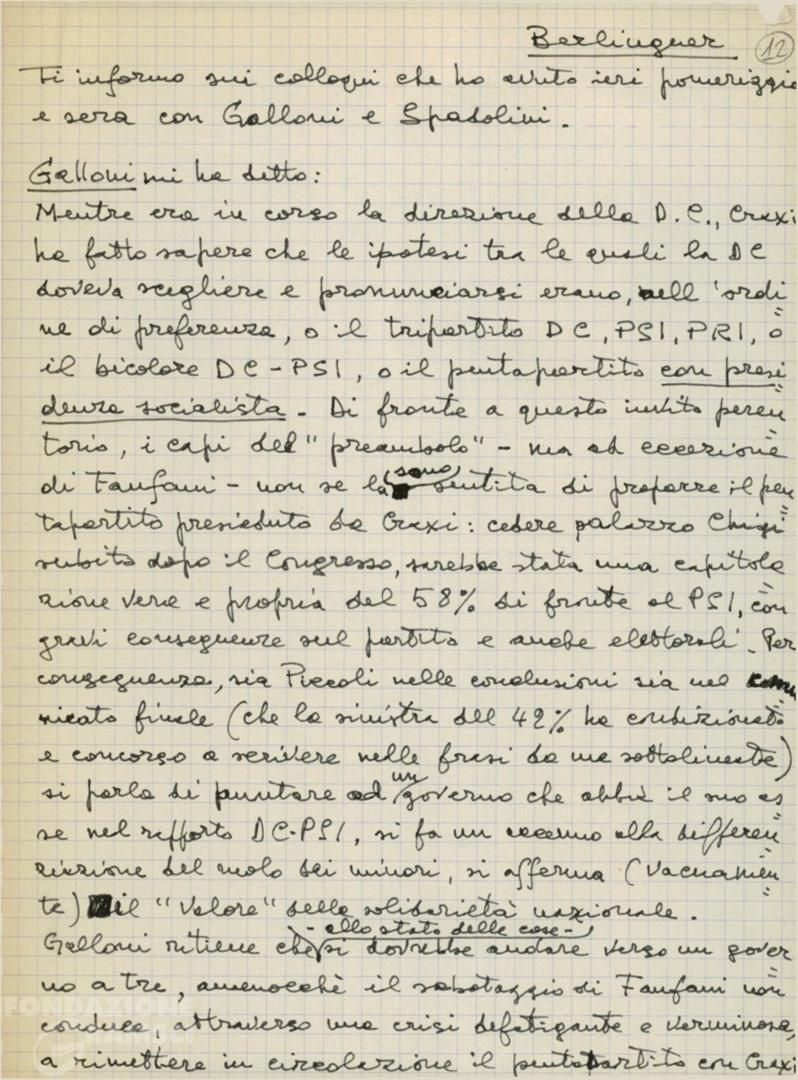 Berlinguer 12
Ti informo sui colloqui che ho avuto ieri pomeriggio
e sera con Galloni e Spadolini.
Galloni mi ha detto:
Mentre era in corso la direzione della D.C., Craxi
ha fatto sapere che le ipotesi tra le quali la DC
doveva scegliere e pronunciarsi erano, nell'ordi
ne di preferenza, o il tripartito DC, PSI, PRI, o
il bicolore DC-PSI, o il pentapartito con presi
denza socialista. Di fronte a questo invito peren
torio, i capi del "preambolo" - ma ad eccezione
di Fanfani - non se la sono sentita di proporre il pen
tapartito presieduto da Craxi: cedere palazzo Chigi
subito dopo il Congresso, sarebbe stata una capitola
zione vera e propria del 58% di fronte al PSI, con
gravi conseguenze sul partito e anche elettorali. Per
conseguenza, sia Piccoli nelle conclusioni sia nel comu
nicato finale (che la sinistra del 42% ha condizionato
e concorso a scrivere nelle frasi da me sottolineate)
si parla di puntare ad un governo che abbia il suo as
se nel rapporto DC-PSI, si fa un accenno alla differen
ziazione del ruolo dei minori, si afferma (vacuamen
te) il "valore" della solidarietà nazionale.
Galloni ritiene che - allo stato delle cose - si dovrebbe andare verso un gover
no a tre, amenocchè il sabotaggio di Fanfani non
conduca, attraverso una crisi defatigante e verminosa,
a rimettere in circolazione il pentapartito con Craxi
FONDAZIONE